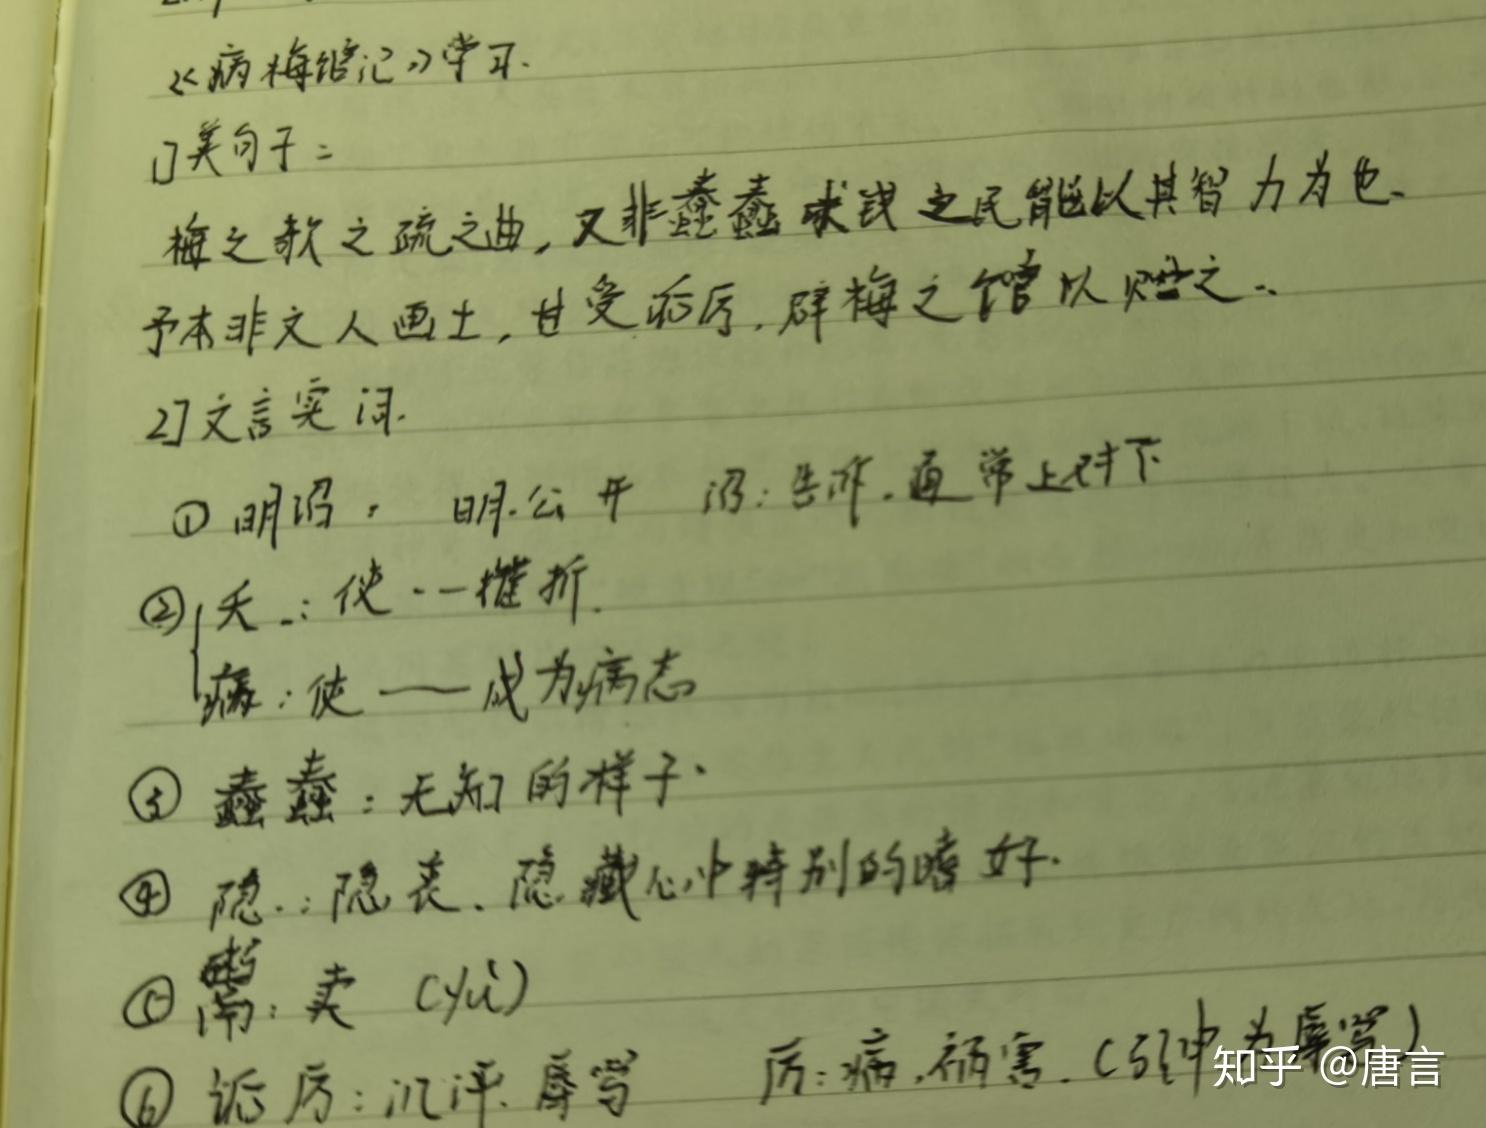 《病梅馆记》学习.
1]美句子：
梅之欹之疏之曲，又非蠢蠢求钱之民能以其智力为也.
予本非文人画士，甘受诟厉，辟梅之馆以贮之..
2]文言实词.
①明诏： 明.公开 诏：告诉.通常上对下
②夭：使……摧折.
病：使——成为病态
③蠢蠢：无知的样子.
④隐：隐衷、隐藏心中特别的嗜好.
⑤鬻：卖 (yù)
⑥诟厉：讥评.辱骂 厉：病.祸害.（引申为辱骂）
知乎 @唐言